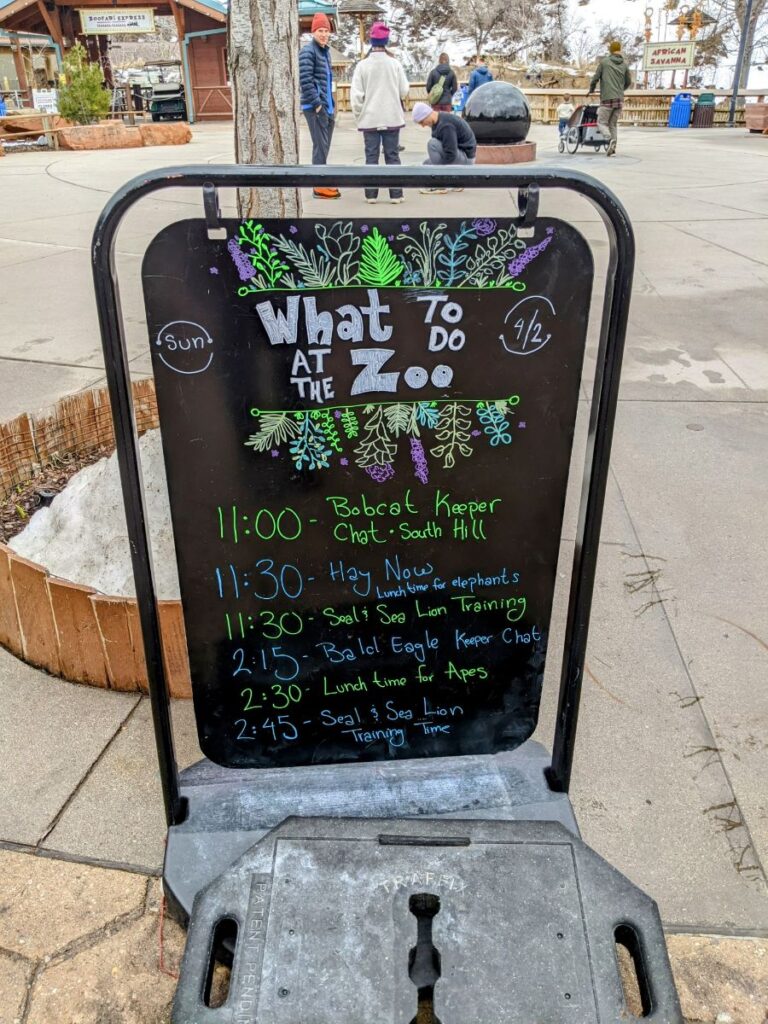 ZOOFARI EXPRESS
AFRICAN
SAVANNA
Sun
What TO DO
AT THE Zoo
4/2
11:00 - Bobcat Keeper
Chat · South Hill
11:30 - Hay Now
Lunch time for elephants
11:30 - Seal & Sea Lion Training
2:15 - Bald Eagle Keeper Chat
2:30 - Lunch time for Apes
2:45 - Seal & Sea Lion
Training Time
TRAFFIX
PATENT PENDIN